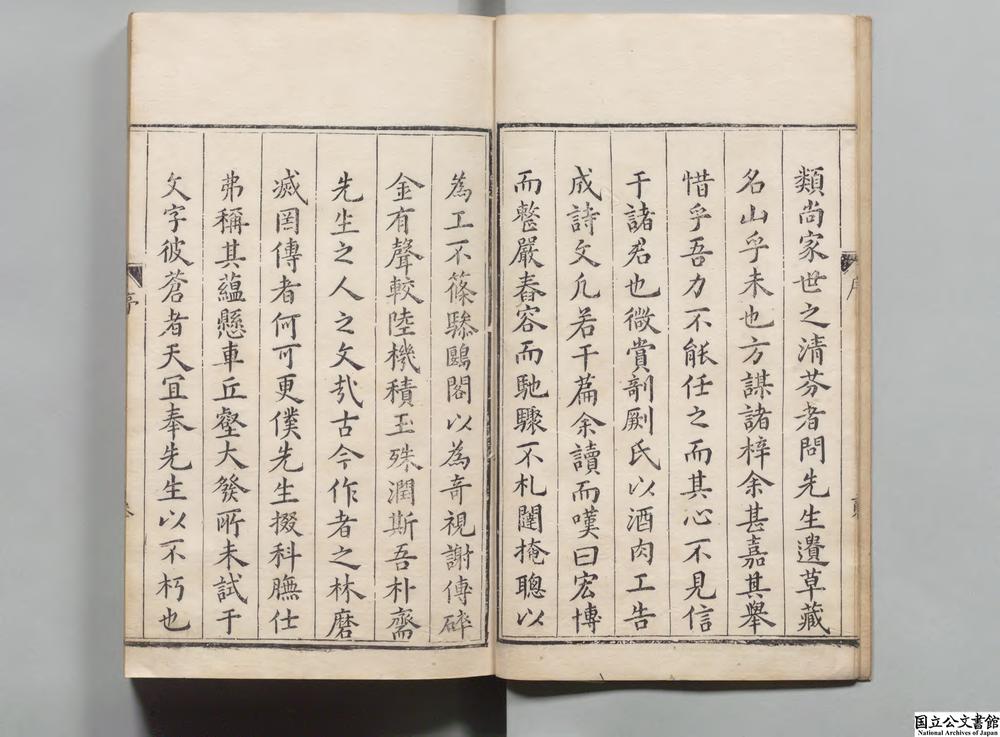 類尚家世之清芬者問先生遺草藏
名山乎未也方謀諸梓余甚嘉其舉
惜乎吾力不能任之而其心不見信
于諸君也微賞剞劂氏以酒肉工告
成詩文凡若干篇余讀而嘆曰宏博
而整嚴舂容而馳驟不札闥掩聰以
為工不篠驂鷗閣以為奇視謝傳碎
金有聲較陸機積玉殊潤斯吾朴齋
先生之人之文哉古今作者之林磨
滅罔傳者何可更僕先生掇科膴仕
弗稱其蘊懸車丘壑大發所未試于
文字彼蒼者天宜奉先生以不朽也
序
序
国立公文書館
National Archives of Japan